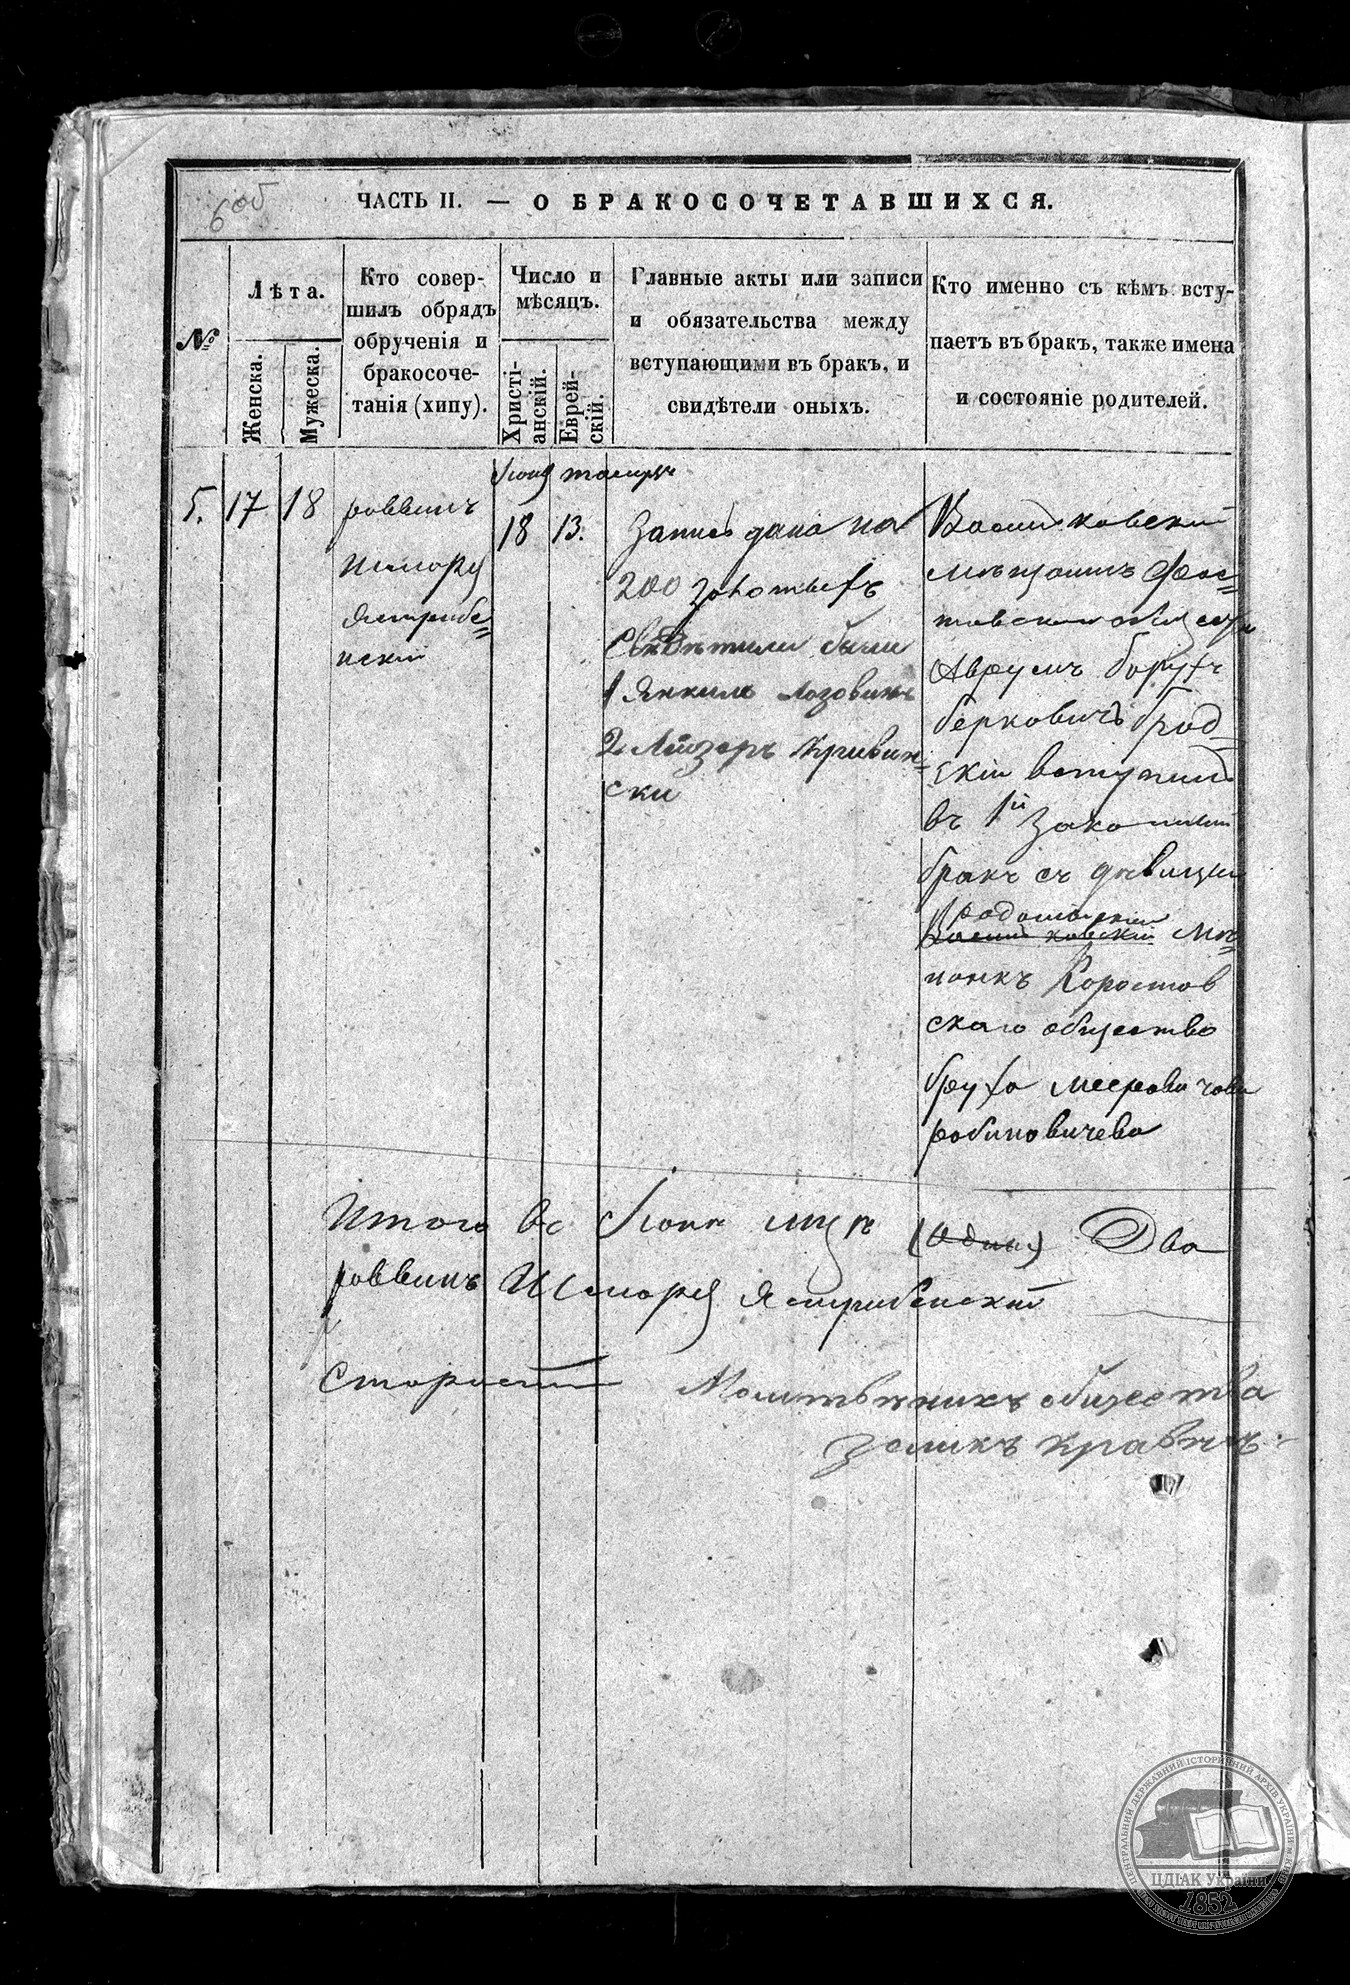 6 об
ЧАСТЬ II. — О БРАКОСОЧЕТАВШИХСЯ.
№
Лѣта.
Женска.
Мужеска.
Кто совер-
шилъ обрядъ
обрученія и
бракосоче-
танія (хипу).
Число и
мѣсяцъ.
Христі-
анскій.
Еврей-
скій.
Главные акты или записи
и обязательства между
вступающими въ бракъ, и
свидѣтели оныхъ.
Кто именно съ кѣмъ всту-
паетъ въ бракъ, также имена
и состояніе родителей.
5.
17
18
раввинъ
Ишмору
Ястребе=
нский
18
13.
Запись дана на
200 золотыхъ
Свѣдѣтили были
1 Янкиль Лозовикъ
2 Лейзеръ Кривин=
ски
Васильковский
мѣщанинъ Фас=
товскаго обществ
Аврумъ Борухъ
Берковичъ Брод=
ский вступилъ
въ 1й законный
бракъ съ дѣвицей
Радомыский
Васильковский мѣ=
щанкъ Коростов
скаго общество
Бруха Меерови чова
Рабиновичева
Итого въ Июнѣ мцѣ (Одинъ) Два
раввинъ Ишмору Ястребенский
Староста
Молитвѣникъ общества
Зеликъ Кравецъ.
ЦЕНТРАЛЬНИЙ ДЕРЖАВНИЙ ІСТОРИЧНИЙ АРХІВ УКРАЇНИ
ЦДІАК України
1852